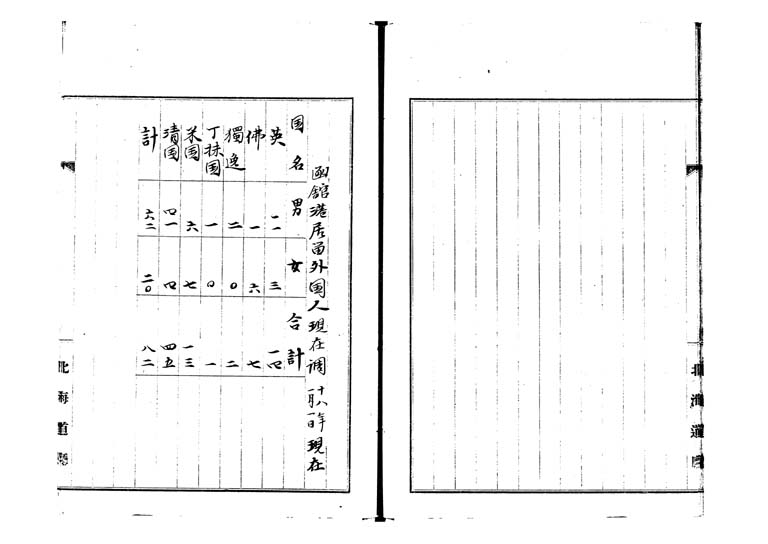 函館港居留外国人現在調 十八年一月一日現在
国名 男 女 合計
英 一一 三 一四
佛 一 六 七
獨逸 二 〇 二
丁抹国 一 〇 一
米国 六 七 一三
清国 四一 四 四五
計 六二 二〇 八二
北海道
北海道